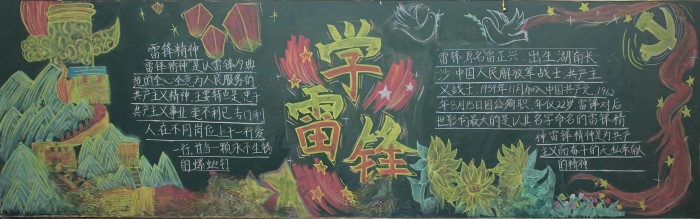 雷锋精神
雷锋精神是以雷锋为典
范的个人全意为人民服务的
共产主义精神主要特点是忠于
共产主义事业毫不利己专门利
人在不同岗位上干一行爱
一行甘当一颗永不生锈
用螺丝钉
学
雷
锋
雷锋原名雷正兴出生湖南长
沙中国人民解放军战士共产主
义战士1957年11月加入中国共产党1962
年8月15日因公殉职年仅22岁雷锋对后
世影响最大的是以其名字命名的雷锋精
神雷锋精神是为共产
主义而奋斗的无私奉献
的精神